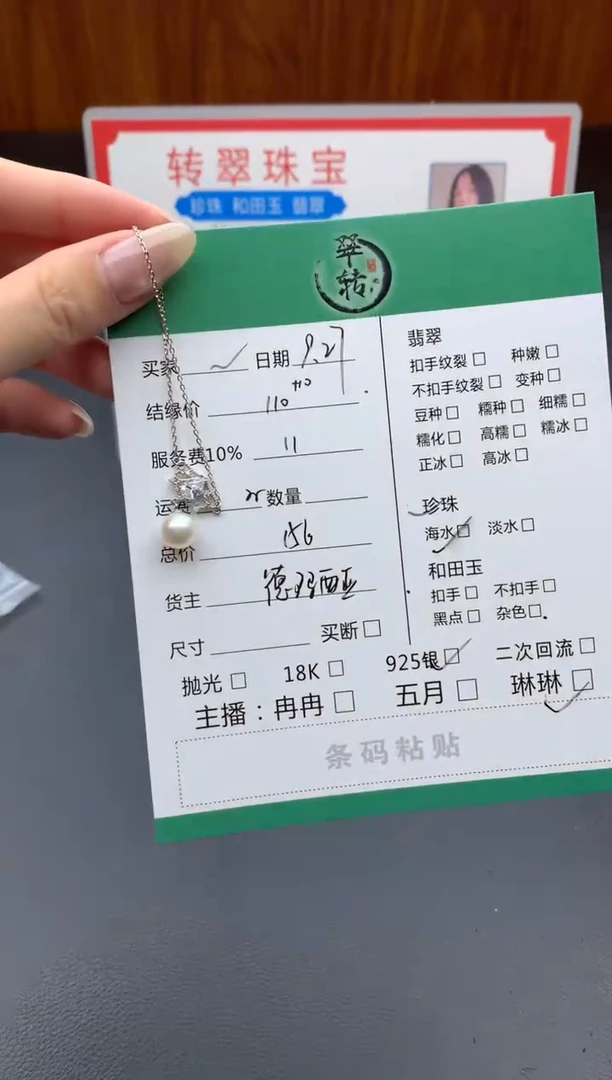 转翠珠宝
珍珠 和田玉 翡翠
翠
转
买家 ✓ 日期 9.27
结缘价 110 +10
服务费10% 11
数量
总价 156
货主 德玛西亚
尺寸 买断□
翡翠
扣手纹裂□ 种嫩□
不扣手纹裂□ 变种□
豆种□ 糯种□ 细糯□
糯化□ 高糯□ 糯冰□
正冰□ 高冰□
珍珠
海水☑ 淡水□
和田玉
扣手□ 不扣手□
黑点□ 杂色□
抛光□ 18K□ 925银☑ 二次回流□
主播：冉冉□ 五月□ 琳琳☑
条码粘贴